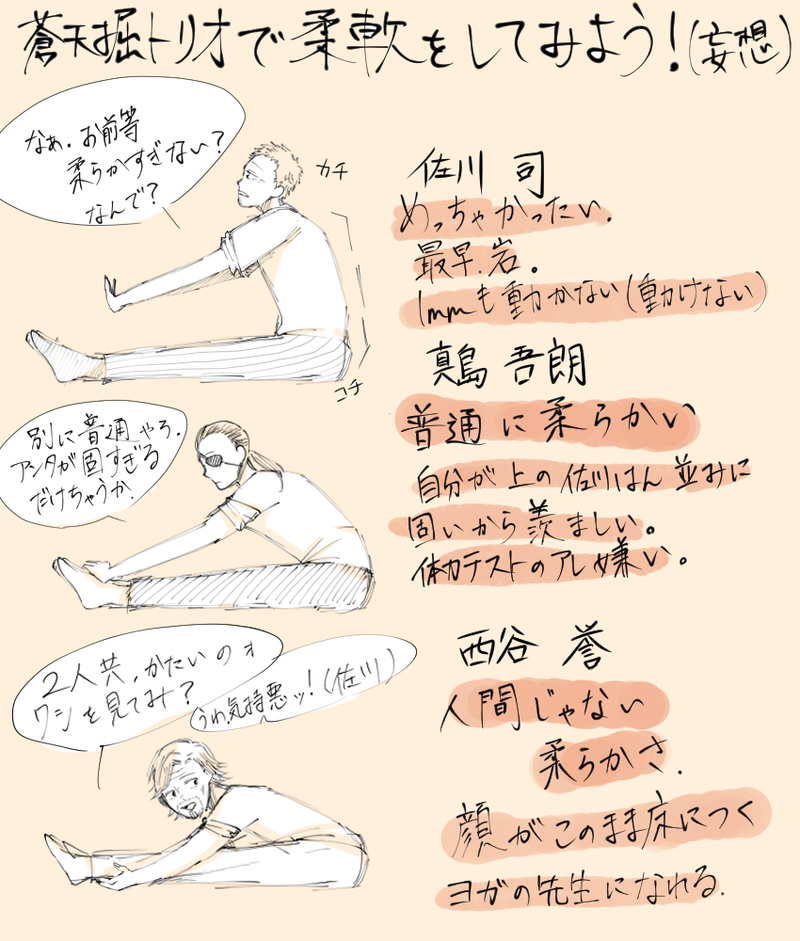 蒼天堀トリオで柔軟をしてみよう!(妄想)
なぁ.お前等
柔らかすぎない?
なんで?
カチ
コチ
佐川 司
めっちゃかったい.
最早.岩。
1mmも動かない(動けない)
別に普通やろ.
アンタが固すぎる
だけちゃうか.
真島 吾朗
普通に柔らかい
自分が上の佐川はん並みに
固いから羨ましい。
体力テストのアレめ嫌い。
2人共,かたいのォ
ワシを見てみ?
うわ気持悪ッ!(佐川)
西谷 誉
人間じゃない
柔らかさ.
顔がこのまま床につく
ヨガの先生になれる.